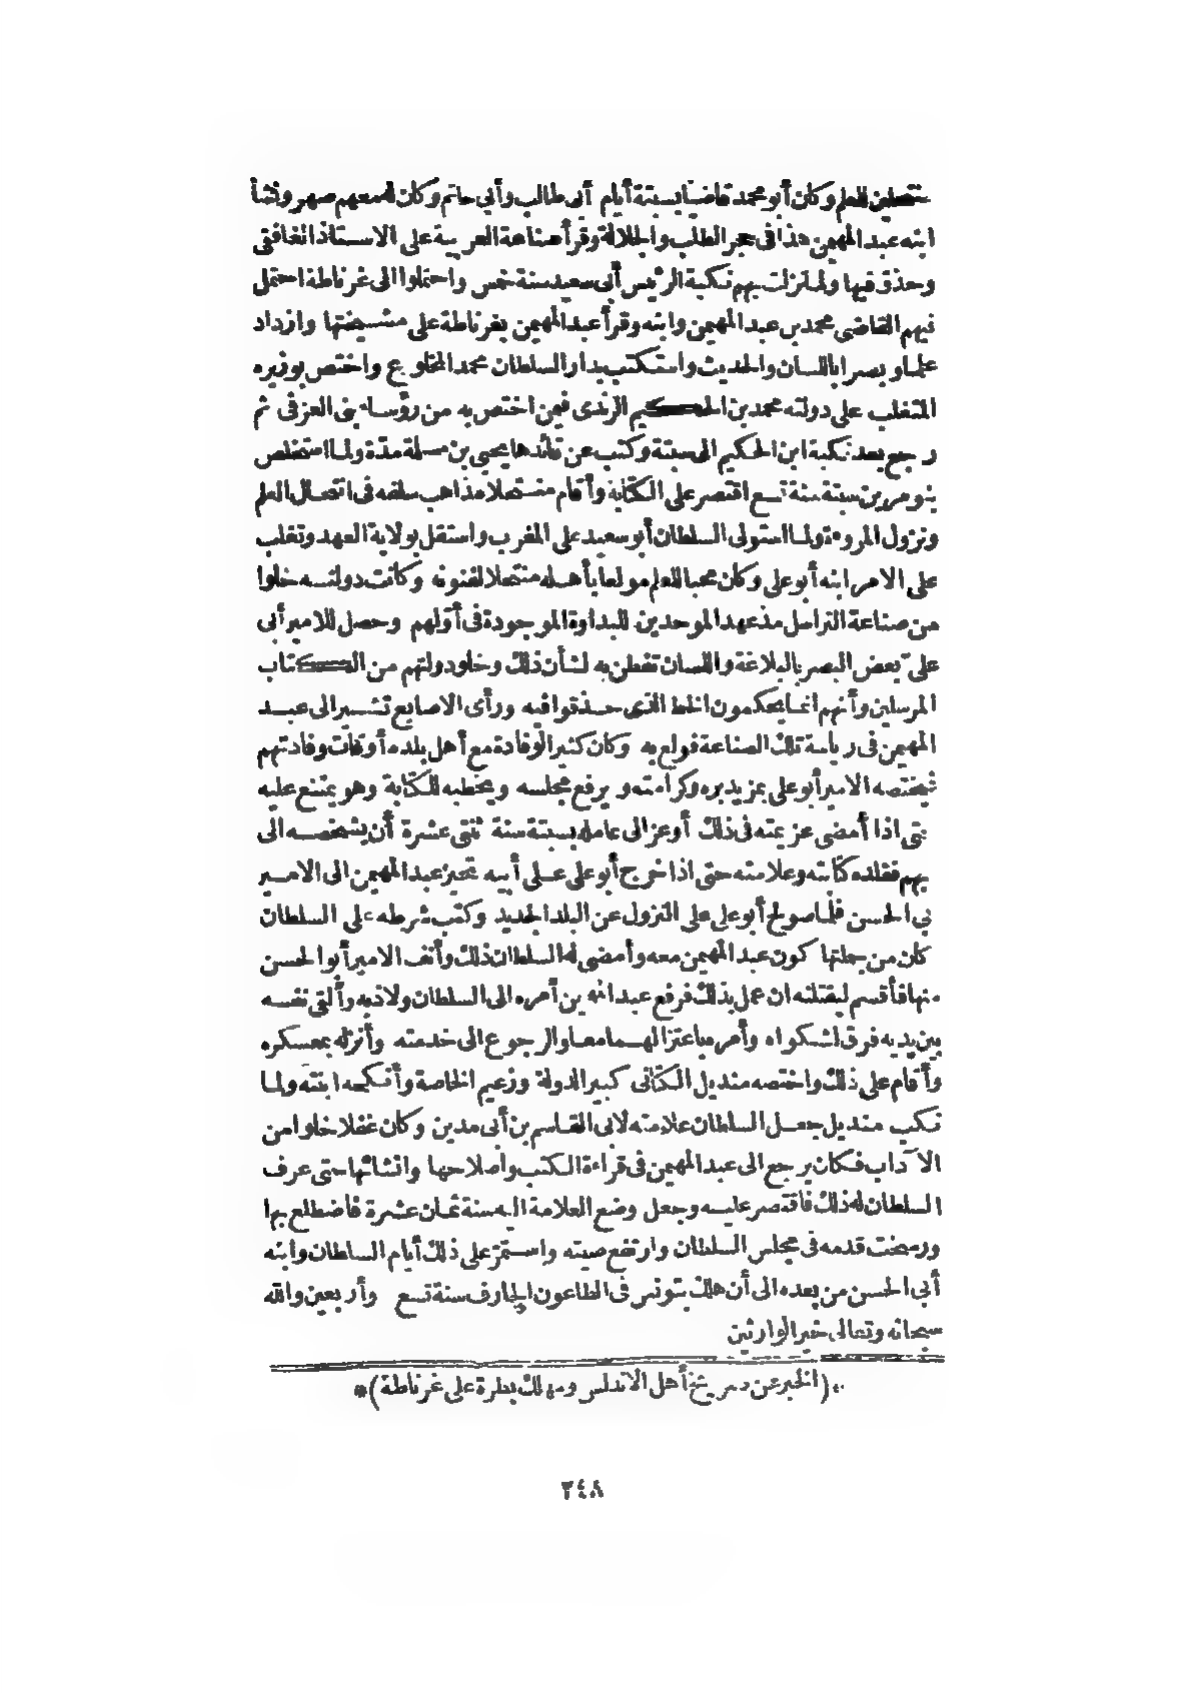 منتحلين للعلم وكان أبو محمد قاضيا بسبتة أيام أبى طالب وأبى حاتم وكان له معهم صهر ونشأ
ابنه عبد المهيمن هذا فى حجر الطلب والجلالة وقرأ صناعة العربية على الاستاذ الغافقى
وحذق فيها ولما نزلت بهم نكبة الرئيس أبى سعيد سنة خمس واحتملوا الى غرناطة احتمل
فيهم القاضى محمد بن عبد المهيمن وابنه وقرأ عبد المهيمن بغرناطة على مشيختها وازداد
علما وبصرا باللسان والحديث واستكتب بدار السلطان محمد المخلوع واختص بوزيره
المتغلب على دولته محمد بن الحكيم الرندى فيمن اختص به من رؤساء بنى العزفى ثم
رجع بعد نكبة ابن الحكيم الى سبتة وكتب عن قائدها يحيى بن مسلمة مدّة ولما استخلص
بنو مرين سبتة سنة تسع اقتصر على الكتابة وأقام منتحلا مذاهب سلفه فى انتحال العلم
ونزول المروءة ولما استولى السلطان أبو سعيد على المغرب واستقل بولاية العهد وتغلب
على الامر ابنه أبو على وكان محبا للعلم مولعا بأهله منتحلا لفنونه وكانت دولته خلوا
من صناعة التراسل مذ عهد الموحدين للبداوة الموجودة فى أوّلهم وحصل للامير أبى
علىّ بعض البصر بالبلاغة واللسان تفطن به لشأن ذلك وخلو دولتهم من الكتاب
المرسلين وأنهم انما يحكمون الخط الذى حذقوا فيه ورأى الاصابع تشير الى عبد
المهيمن فى رياسة تلك الصناعة فولع به وكان كثير الوفادة مع أهل بلده أوقات وفادتهم
فيختصه الامير أبو على بمزيد بره وكرامته ويرفع مجلسه ويخطبه للكتابة وهو يمتنع عليه
حتى اذا أمضى عزيمته فى ذلك أوعز الى عامله بسبتة سنة ثنتى عشرة أن يشخصه الى
بابهم فقلده كتابته وعلامته حتى اذا خرج أبو على على أبيه تحيز عبد المهيمن الى الامير
أبى الحسن فلما صولح أبو على على النزول عن البلد الجديد وكتب شرطه على السلطان
كان من جملتها كون عبد المهيمن معه وأمضى له السلطان ذلك وأنف الامير أبو الحسن
منها فأقسم ليقتلنه ان عمل بذلك فرفع عبد المهيمن أمره الى السلطان ولاذ به وألقى نفسه
بين يديه فرق لشكواه وأمره باعتزالهما معا والرجوع الى خدمته وأنزله بعسكره
وأقام على ذلك واختصه منديل الكتانى كبير الدولة وزعيم الخاصة وأنكحه ابنته ولما
نكب منديل جعل السلطان علامته لابى القاسم بن أبى مدين وكان غفلا خلوا من
الآداب فكان يرجع الى عبد المهيمن فى قراءة الكتب واصلاحها وانشائها حتى عرف
السلطان له ذلك فاقتصر عليه وجعل وضع العلامة اليه سنة ثمان عشرة فاضطلع بها
ورسخت قدمه فى مجلس السلطان وارتفع صيته واستمرّ على ذلك أيام السلطان وابنه
أبى الحسن من بعده الى أن هلك بتونس فى الطاعون الجارف سنة تسع وأربعين والله
سبحانه وتعالى خير الوارثين
*(الخبر عن صريخ أهل الاندلس ومهلك بطرة على غرناطة)*
٢٤٨